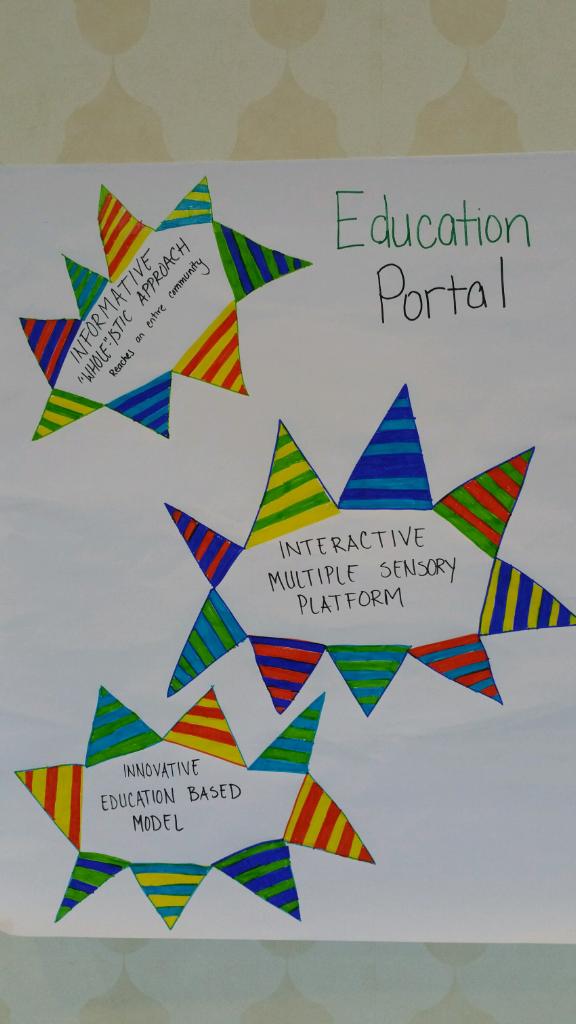 Education
Portal
INFORMATIVE
"WHOLE"-ISTIC APPROACH
Reaches an entire community
INTERACTIVE
MULTIPLE SENSORY
PLATFORM
INNOVATIVE
EDUCATION BASED
MODEL